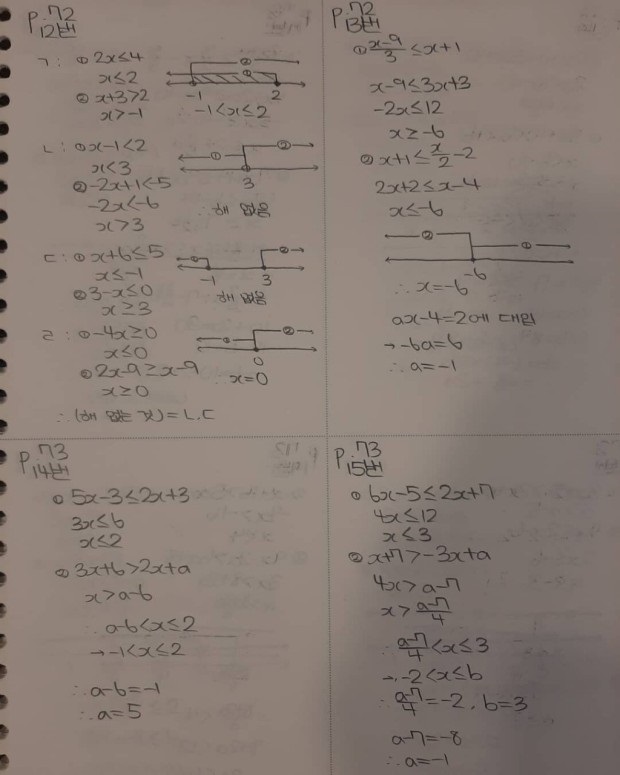 P.72
12번
ㄱ: ① 2x≤4
x≤2
② x+3>2
x>-1
②
①
-1 2
∴ -1<x≤2
ㄴ: ① x-1<2
x<3
② -2x+1<-5
-2x<-6
x>3
① ②
3
∴ 해 없음
ㄷ: ① x+6≤5
x≤-1
② 3-x≤0
x≥3
① ②
-1 3
∴ 해 없음
ㄹ: ① -4x≥0
x≤0
② 2x-9≥x-9
x≥0
① ②
0
∴ x=0
∴ (해 없는 것) = ㄴ.ㄷ
P.72
13번
① x-9/3 ≤x+1
x-9≤3x+3
-2x≤12
x≥-6
② x+1≤x/2-2
2x+2≤x-4
x≤-6
② ①
-6
∴ x=-6
ax-4=2에 대입
→ -6a=6
∴ a=-1
P.73
14번
① 5x-3≤2x+3
3x≤6
x≤2
② 3x+6>2x+a
x>a-6
∴ a-6<x≤2
→ -1<x≤2
∴ a-6=-1
∴ a=5
P.73
15번
① 6x-5≤2x+7
4x≤12
x≤3
② x+7>-3x+a
4x>a-7
x>a-7/4
∴ a-7/4<x≤3
→ -2<x≤b
∴ a-7/4=-2, b=3
a-7=-8
∴ a=-1